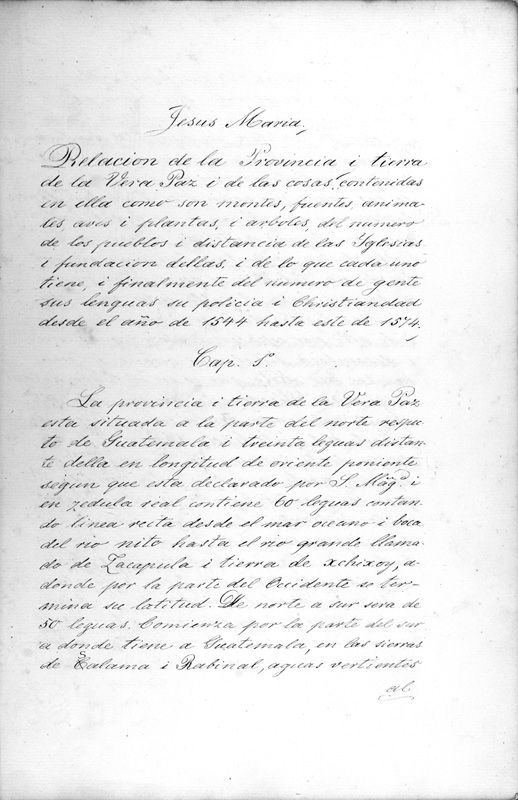 Jesus Maria,
Relacion de la Provincia i tierra
de la Vera Paz i de las cosas, contenidas
en ella como son montes, fuentes, anima-
les aves i plantas, i arboles, del numero
de los pueblos i distancia de las Yglesias
i fundacion dellas, i de lo que cada uno
tiene, i finalmente del numero de gente
sus lenguas su policia i Christiandad
desde el año de 1544 hasta este de 1574.
Cap. 1º
La provincia i tierra de la Vera Paz
esta situada a la parte del norte respec-
to de Guatemala i treinta leguas distan-
te della en longitud de oriente poniente
segun que esta declarado por S. Magd. i
en zedula real contiene 60 leguas contan-
do linea recta desde el mar oceano i boca
del rio nito hasta el rio grande llama-
do de Zacapula i tierra de xchixoy, a-
donde por la parte del Occidente se ter-
mina su latitud. De norte a sur sera de
50 leguas. Comienza por la parte del sur
a donde tiene a Guatemala, en las sierras
de Çalama i Rabinal, aguas vertientes
al